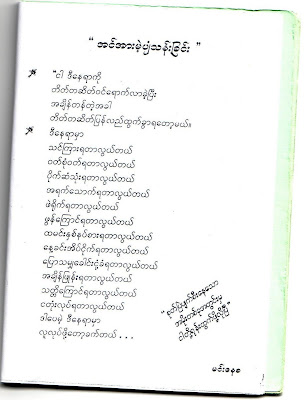 " အင်အားမဲ့ပျံသန်းခြင်း "
" ငါ ဒီနေရာကို
တိတ်တဆိတ်ဝင်ရောက်လာခဲ့ပြီး
အချိန်တန်တဲ့အခါ
တိတ်တဆိတ်ပြန်လည်ထွက်ခွာရတော့မယ်။
ဒီနေရာမှာ
သင်ကြားရတာလွယ်တယ်
ဝတ်စုံဝတ်ရတာလွယ်တယ်
ပိုက်ဆံသုံးရတာလွယ်တယ်
အရက်သောက်ရတာလွယ်တယ်
ဖဲရိုက်ရတာလွယ်တယ်
ဖွန်ကြောင်ရတာလွယ်တယ်
ထမင်းနှစ်နပ်စားရတာလွယ်တယ်
နေ့ခင်းအိပ်ငိုက်ရတာလွယ်တယ်
ပြောသမျှခေါင်းငုံ့ခံရတာလွယ်တယ်
အချိန်ဖြုန်းရတာလွယ်တယ်
သတ္တိကြောင်ရတာလွယ်တယ်
ငတုံးလုပ်ရတာလွယ်တယ်
ဒါပေမဲ့ ဒီနေရာမှာ
လူလုပ်ဖို့တော့ခက်တယ် . . .
မင်းနေစ